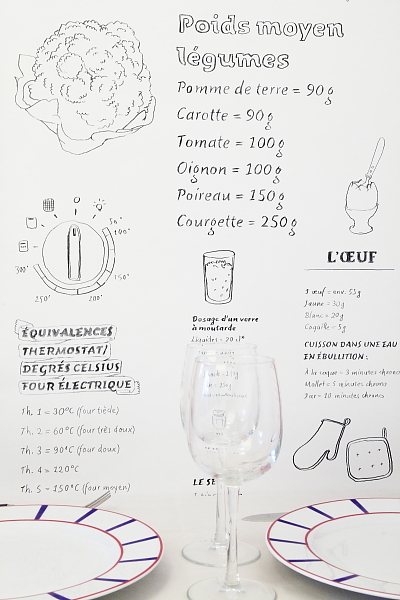 Poids moyen
légumes
Pomme de terre = 90g
Carotte = 90g
Tomate = 100g
Oignon = 100g
Poireau = 150g
Courgette = 250g
5h'
100'
150'
200'
250'
300'
ÉQUIVALENCES
THERMOSTAT/
DEGRÉS CELSIUS
FOUR ÉLECTRIQUE
Th. 1 = 30°C (four tiède)
Th. 2 = 60°C (four très doux)
Th. 3 = 90°C (four doux)
Th. 4 = 120°C
Th. 5 = 150°C (four moyen)
Dosage d'un verre
à moutarde
Liquides = 20 cl
LE
L'ŒUF
1 œuf = env. 55g
Jaune = 20g
Blanc = 30g
Coquille = 5g
CUISSON DANS UNE EAU
EN ÉBULLITION :
À la coque = 3 minutes chrono
Mollet = 5 minutes chrono
Dur = 10 minutes chrono